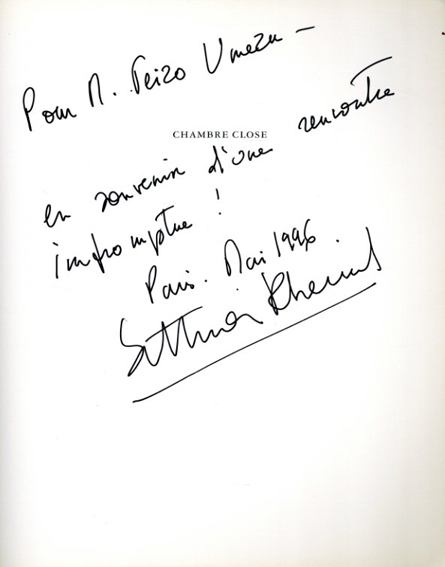 Pour M. Teizo Umezu —
CHAMBRE CLOSE
en souvenir d'une rencontre
impromptue !
Paris. Mai 1996
Bettina Rheims